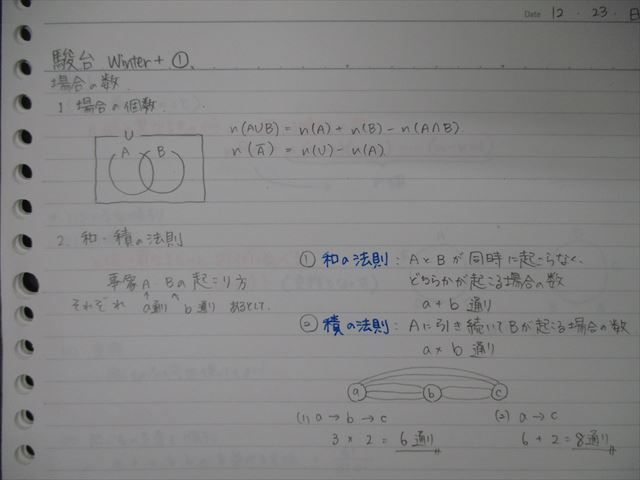 Date 12 ・ 23 ・ 日
駿台 Winter+ ①.
場合の数.
1 場合の個数.
U
A B
n(A∪B) = n(A) + n(B) - n(A∩B)
n(A̅) = n(U) - n(A)
2. 和・積の法則
事象A・Bの起こり方
それぞれ a通り b通り あるとして.
① 和の法則 : AとBが同時に起こらなく、
どちらかが起こる場合の数
a + b 通り
② 積の法則 : Aに引き続いてBが起こる場合の数
a × b 通り
a b c
(1) a → b → c
3 × 2 = 6通り
(2) a → c
6 + 2 = 8通り